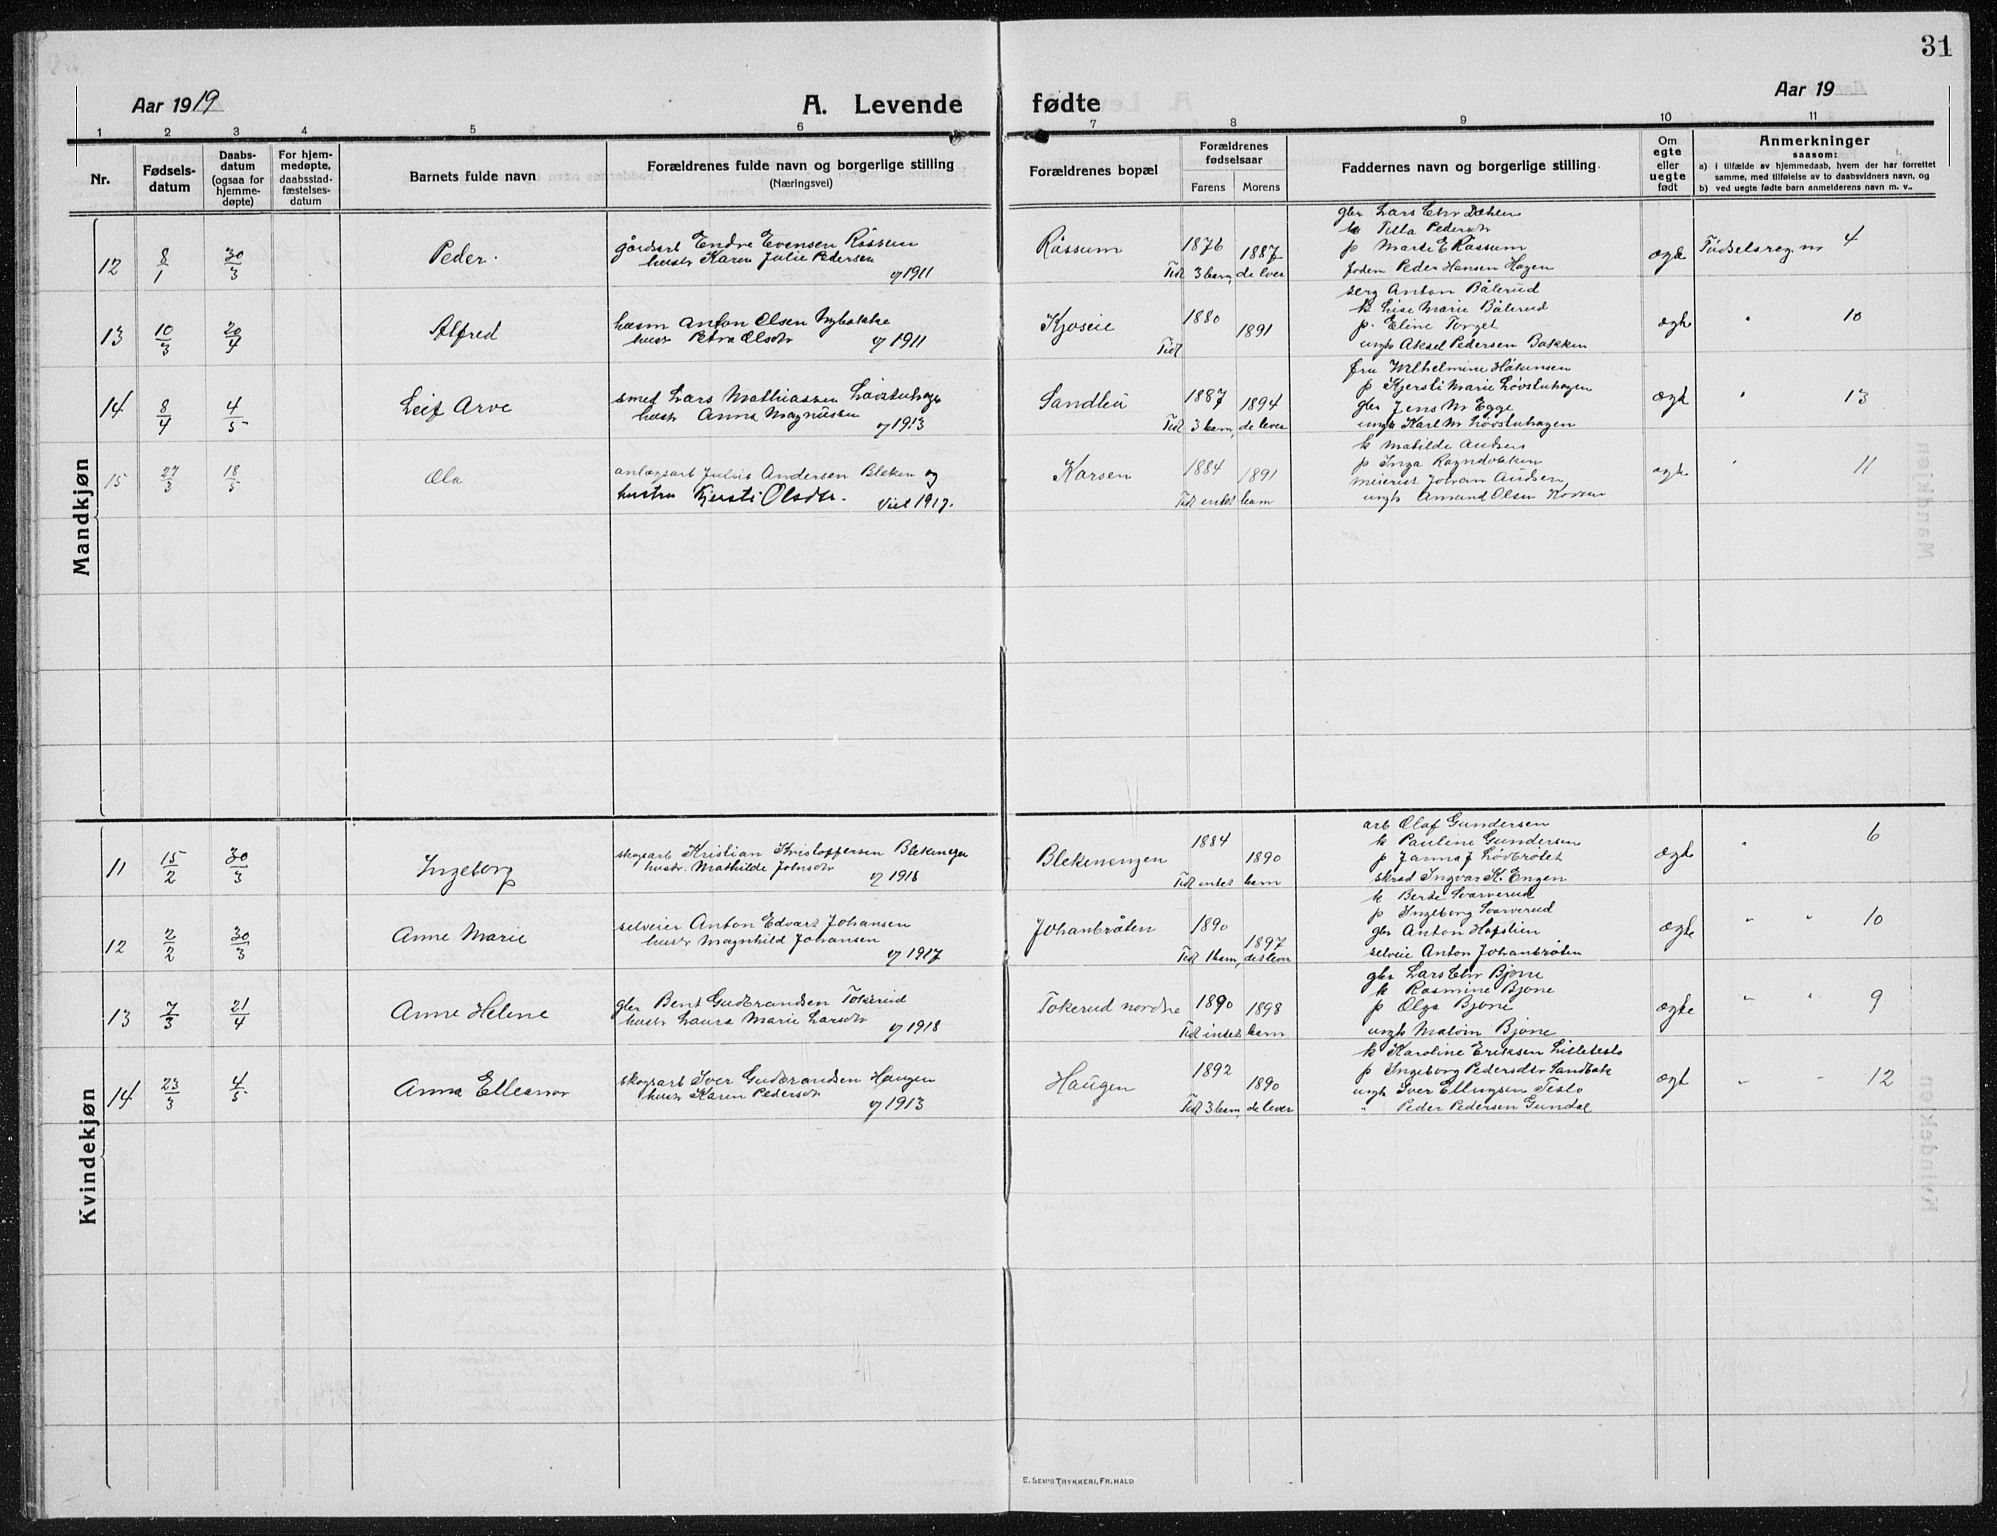 31
Aar 1919
A. Levende fødte
Aar 19
1 2 3 4 5 6 7 8 9 10 11
Nr.
Fødsels-
datum
Daabs-
datum
(ogsaa for
hjemme-
døpte)
For hjem-
medøpte,
daabsstad-
fæstelses-
datum
Barnets fulde navn
Forældrenes fulde navn og borgerlige stilling
(Næringsvei)
Forældrenes bopæl
Forældrenes
fødselsaar
Farens Morens
Faddernes navn og borgerlige stilling
Om
egte
eller
uegte
født
Anmerkninger
saasom:
a) i tilfælde av hjemmedaab, hvem der har forrettet
samme, med tilføielse av to daabsvidners navn, og
b) ved uegte fødte barn anmelderens navn m. v..
Mandkjøn
12 8/1 30/3 Peder.
gårdsarb Endre Evensen Råssum
hustr Karen Julie Pedersen
g 1911
Råssum 1876 1887
Tidl 3 barn, de lever
gbr Lars Chr Dæhlen
k Tilla Pedersdr
p Marte E Råssum
Peder Hansen Hagen
ægte Fødselsreg. nr 4
13 10/3 20/4 Alfred
husm Anton Olsen Nybakke
hustr Petra Olsdtr g 1911
Kjoseie 1880 1891
Tidl
serg Anton Bålerud
k Lise Marie Bålerud
p. Eline Torget
ungk Aksel Pedersen Bakken
ægte " 10
14 8/4 4/5 Leif Arve
smed Lars Mathiassen Løvstuhagen
hustr Anna Magnussen
g 1913
Sandlia 1887 1894
Tidl 3 barn, de lever
fru Wilhelmine Håkensen
p Kjersti Marie Løvstuhagen
gbr Jens M Egge
ungk Karl M Løvstuhagen
ægte " 13
15 27/3 18/5 Ola
anlægsarb Julius Andersen Bleken og
hustru Kjersti Olsdtr. Viet 1917.
Korsen 1884 1891
Tidl intet barn
k Matilde Audsen
p Inga Rogndokken
meierist Johan Audsen,
ungk Amund Olsen Korsen
ægte " 11
Kvindekjøn
11 15/2 30/3 Ingeborg
skogsarb Kristian Kristoffersen Blekeneger
hustr. Mathilde Johnsdr g 1918
Blekenengen 1884 1890
Tidl intet barn
arb Olaf Gundersen
k Pauline Gundersen
p Janna J Lødbrøtet
skræd Ingvar K. Engen
ægte " 6
12 2/2 30/3 Anne Marie
selveier Anton Edvart Johansen
hustr Magnhild Johansen
g 1917
Johanbråten 1890 1897
Tidl 1 barn, det lever
k Berte Svarverud
p Ingeborg Svarverud
gbr Anton Hofslien
selveie Anton Johanbråten
ægte " " 10
13 7/3 21/4 Anne Helene
gbr Bent Gudbrandsen Tokerud
hustr Laura Marie Larsdtr g 1918
Tokerud nordre 1890 1898
Tidl intet barn
gbr Lars Chr Bjone
k Rasmine Bjone
p Olga Bjone
ungk Malvin Bjone
ægte " " 9
14 23/3 4/5 Anna Elleanor
skogsarb Iver Gudbrandsen Haugen
hustr Karen Pedersdtr
g 1913
Haugen 1892 1890
Tidl 3 barn, de lever
k Karoline Eriksen Lilleteslo
p Ingeborg Pedersdtr Sandbak
ungk Iver Ellingsen Teslo
" Peder Pedersen Gundal
ægt " " 12
E. SEM'S TRYKKERI, FR. HALD